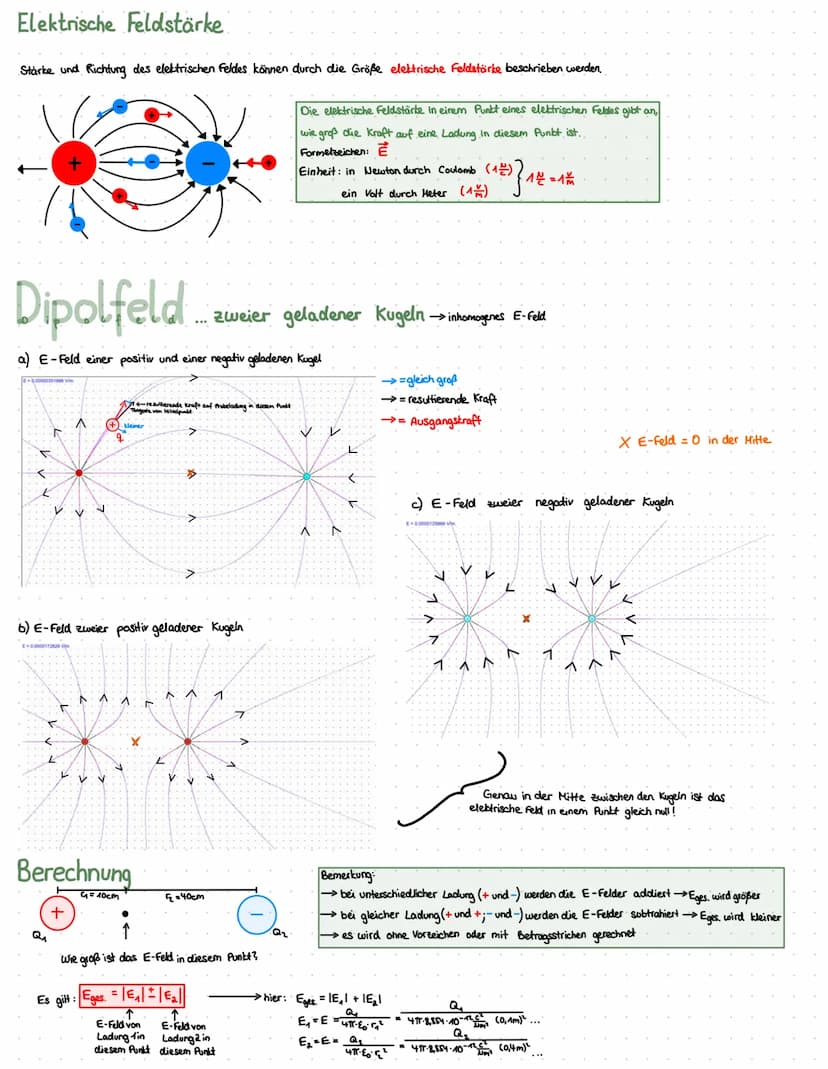 Elektrische Feldstärke
Stärke und Richtung des elektrischen Feldes können durch die Größe elektrische Feldstärke beschrieben werden.
Die elektrische Feldstärke in einem Punkt eines elektrischen Feldes gibt an,
wie groß die Kraft auf eine Ladung in diesem Punkt ist.
Formelzeichen: E⃗
Einheit: in Newton durch Coulomb (1 N/C) } 1 N/C = 1 V/m
ein Volt durch Meter (1 V/m)
+ + − + − − + −
Dipolfeld ... zweier geladener Kugeln → inhomogenes E-Feld
a) E-Feld einer positiv und einer negativ geladenen Kugel
← resultierende Kraft auf Probeladung in diesem Punkt
kleiner
q
→ = gleich groß
→ = resultierende Kraft
→ = Ausgangskraft
x E-Feld = 0 in der Mitte
c) E-Feld zweier negativ geladener Kugeln
b) E-Feld zweier positiv geladener Kugeln
Genau in der Mitte zwischen den Kugeln ist das
elektrische Feld in einem Punkt gleich null!
Berechnung
r₁ = 10cm r₂ = 40cm
+ −
Q₁ Q₂
Wie groß ist das E-Feld in diesem Punkt?
Bemerkung:
→ bei unterschiedlicher Ladung (+ und −) werden die E-Felder addiert → Eges. wird größer
→ bei gleicher Ladung (+ und +; − und −) werden die E-Felder subtrahiert → Eges. wird kleiner
→ es wird ohne Vorzeichen oder mit Betragsstrichen gerechnet
Es gilt: Eges. = |E₁| ± |E₂| → hier: Eges. = |E₁| + |E₂|
E-Feld von E-Feld von
Ladung 1 in Ladung 2 in
diesem Punkt diesem Punkt
E₁ = E = Q₁ / 4π·ε₀·r₁² = Q₁ / 4π·8,854·10⁻¹² C²/Nm² · (0,1m)² ...
E₂ = E = Q₂ / 4π·ε₀·r₂² = Q₂ / 4π·8,854·10⁻¹² C²/Nm² · (0,4m)² ...